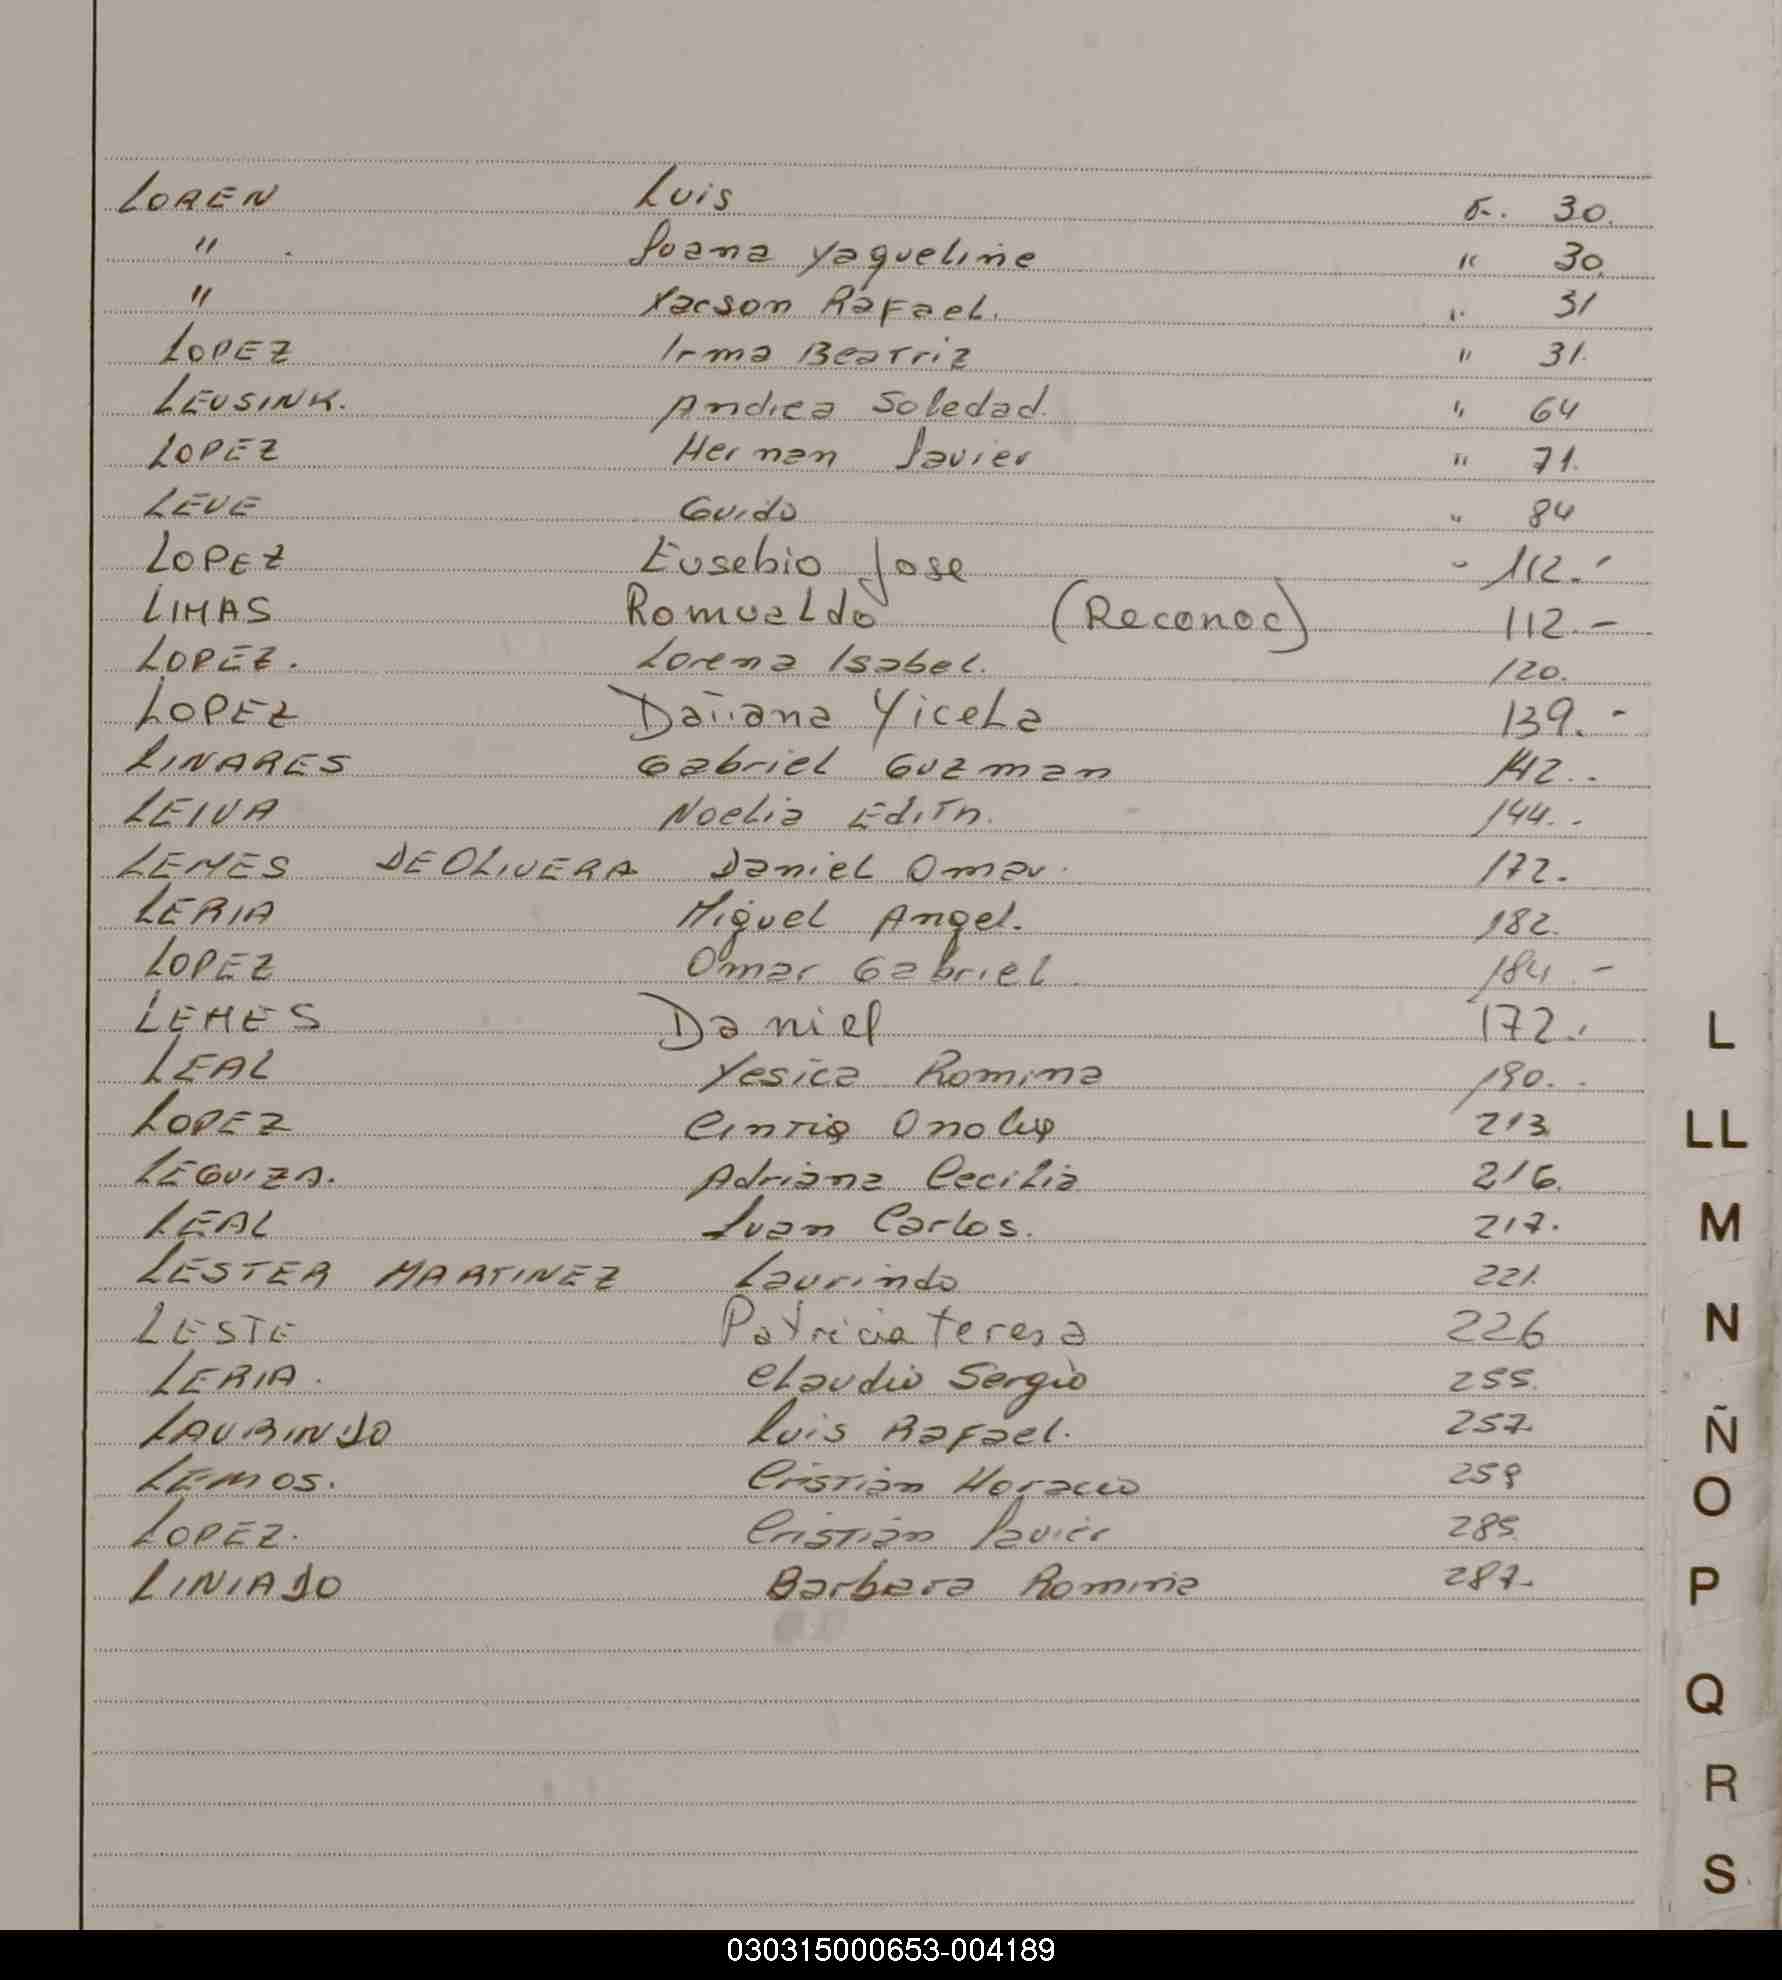 LOREN Luis F. 30.
" . Juana Yaqueline " 30.
" Yacson Rafael. " 31
LOPEZ Irma Beatriz " 31.
LEUSINK. Andrea Soledad. " 64
LOPEZ Hernan Javier " 71.
LEVE Guido " 84
LOPEZ Eusebio Jose " 112.-
LIMAS Romualdo (Reconoc) 112.-
LOPEZ. Lorena Isabel. 120.
LOPEZ Daiana Yicela 139.-
LINARES Gabriel Guzman 142..
LEIVA Noelia Edith. 144..
LEMES DE OLIVERA Daniel Omar. 172.
LERIA Miguel Angel. 182.
LOPEZ Omar Gabriel 184.-
LEMES Daniel 172.-
LEAL Yesica Romina 190..
LOPEZ Cintia 213
LEGUIZA. Adriana Cecilia 216.
LEAL Juan Carlos. 217.
LESTER MARTINEZ Laurindo 221.
LESTE Patricia Teresa 226
LERIA. Claudio Sergio 255.
LAURINDO Luis Rafael. 257.
LEMOS. Cristian Horacio 259
LOPEZ. Cristian Javier 285.
LINIADO Barbara Romina 287.
L
LL
M
N
Ñ
O
P
Q
R
S
030315000653-004189